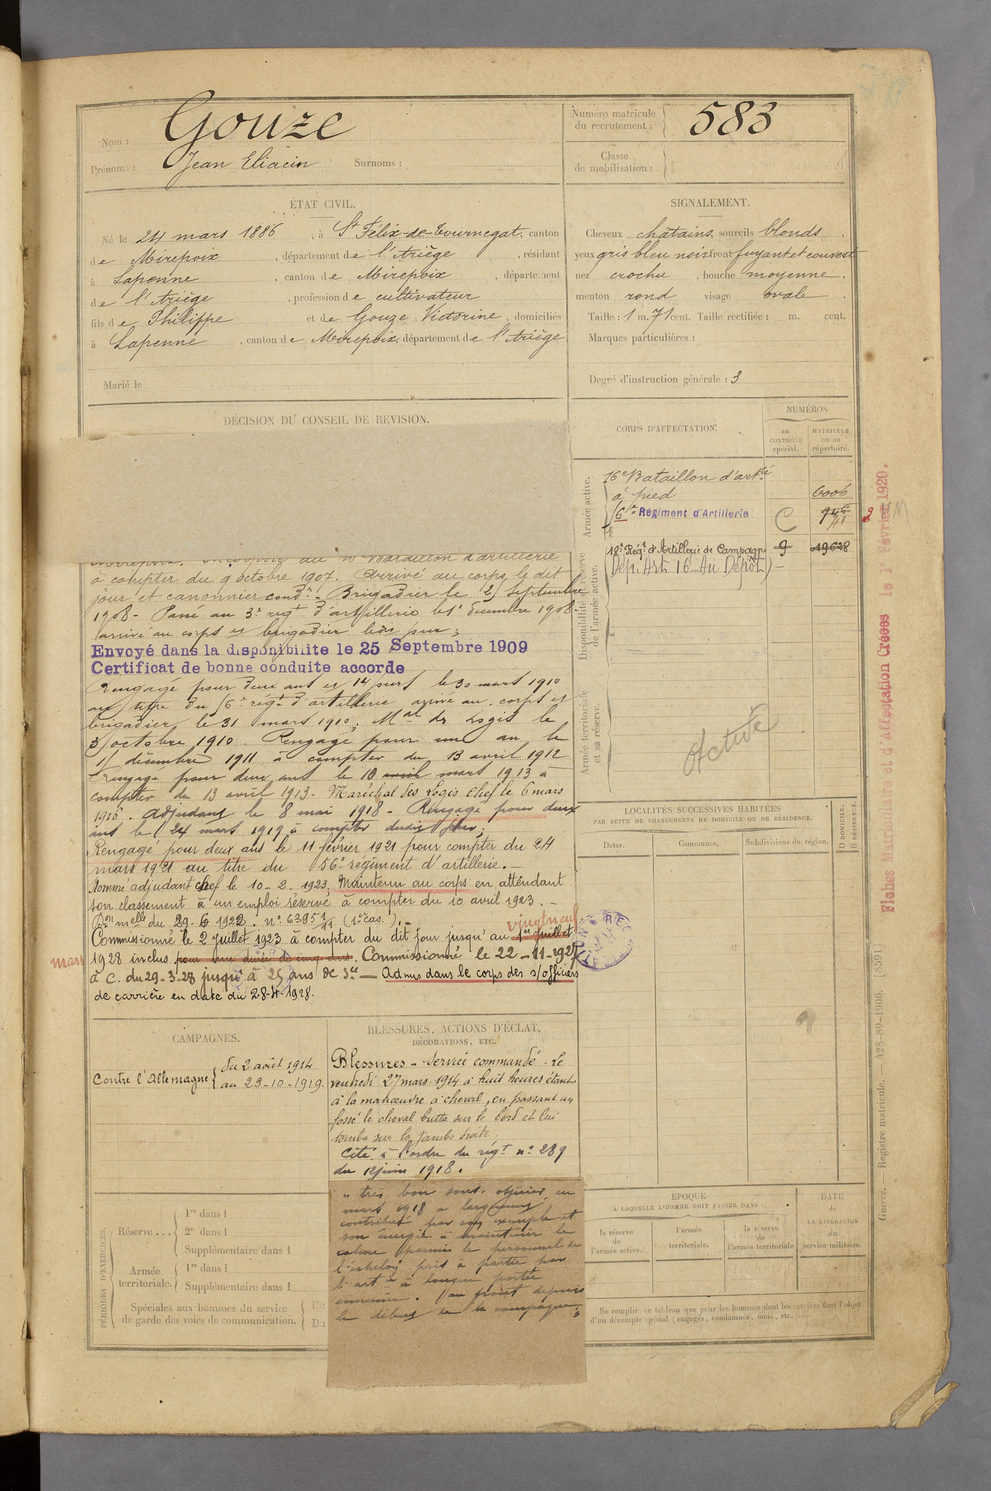 Nom : Gouze
Prénoms : Jean Eliacin Surnoms :
Numéro matricule du recrutement : 583
Classe de mobilisation :
ÉTAT CIVIL.
Né le 24 mars 1886, à St Félix-de-Tournegat, canton
de Mirepoix, département de l'Ariège, résidant
à Lapenne, canton de Mirepoix, département
de l'Ariège, profession de cultivateur
fils de Philippe et de Gouze Victorine, domiciliés
à Lapenne, canton de Mirepoix, département de l'Ariège
Marié le
SIGNALEMENT.
Cheveux châtains, sourcils blonds,
yeux gris bleu noir front fuyant et couvert
nez crochu, bouche moyenne,
menton rond visage ovale.
Taille : 1 m. 71 cent. Taille rectifiée : m. cent.
Marques particulières :
Degré d'instruction générale : 3
DÉCISION DU CONSEIL DE REVISION.
à compter du 9 octobre 1907. Arrivé au corps le dit
jour et canonnier condr. Brigadier le 25 Septembre
1908 - Passé au 3e régt d'artillerie le 1er décembre 1908
arrivé au corps et brigadier
Envoyé dans la disponibilite le 25 Septembre 1909
Certificat de bonne conduite accorde
Rengagé pour deux ans et 14 jours le 30 mars 1910
au titre du 56e régt d'artillerie arrivé au corps et
brigadier le 31 mars 1910; Mal des Logis le
3 octobre 1910. Rengagé pour un an le
11 décembre 1911 à compter du 13 avril 1912
Rengagé pour deux ans le 10 avril mars 1913 à
compter du 13 avril 1913. Maréchal des Logis Chef le 6 mars
1916. adjudant le 8 mai 1918 - Rengagé pour deux
ans le 24 mars 1919 à compter dudit jour;
Rengagé pour deux ans le 11 février 1921 pour compter du 24
mars 1921 au titre du 56e régiment d'artillerie. -
Nommé adjudant chef le 10-2-1923. Maintenu au corps en attendant
son classement à un emploi réservé à compter du 10 avril 1923. -
(Don melle du 29-6-1922. no 6395 1/11 (1er cas.). -
vingt neuf
Commissionné le 2 Juillet 1923 à compter du dit jour jusqu'au 1er Juillet
mars 1928 inclus pour une durée de cinq ans. Commissionné le 22-11-1927
à C. du 29-3-28 jusqu'à 25 ans de Sce — Admis dans le corps des s/officiers
de carrière en date du 28-4-1928.
CORPS D'AFFECTATION.
NUMÉROS
AU CONTRÔLE spécial.
MATRICULE ou au répertoire.
Armée active.
16e Bataillon d'artie
à pied 6006
56e Régiment d'Artillerie C
Disponibilité et réserve de l'armée active.
18e Régt d'Artillerie de Campagne 9 019628
Dép. Art. 16 Au Dépôt
Armée territoriale et sa réserve.
Active
LOCALITÉS SUCCESSIVES HABITÉES
PAR SUITE DE CHANGEMENTS DE DOMICILE OU DE RÉSIDENCE.
Dates. Communes. Subdivisions de région. D DOMICILE. R RÉSIDENCE.
CAMPAGNES.
Contre l'Allemagne du 2 août 1914
au 23-10-1919.
BLESSURES, ACTIONS D'ÉCLAT,
DÉCORATIONS, ETC.
Blessures - Service commandé - Le
vendredi 27 mars 1914 à huit heures étant
à la manœuvre à cheval, en passant un
fossé le cheval butta sur le bord et lui
tomba sur la jambe droite.
Cité à l'ordre du régt no 289
du 12 juin 1918.
"très bon sous-officier, en
mars 1918 a largement
contribué par son exemple et
son énergie à maintenir le
calme parmi le personnel de
l'échelon pris à partie par
l'artie à longue portée
ennemie. Au front depuis
le début de la campagne"
PÉRIODES D'EXERCICES.
Réserve... 1re dans l
2e dans l
Supplémentaire dans l
Armée territoriale. 1re dans l
Supplémentaire dans l
Spéciales aux hommes du service
de garde des voies de communication.
ÉPOQUE
A LAQUELLE L'HOMME DOIT PASSER DANS :
la réserve de l'armée active.
l'armée territoriale.
la réserve de l'armée territoriale
DATE de LA LIBÉRATION du service militaire.
Ne remplir ce tableau que pour les hommes dont les services font l'objet
d'un décompte spécial (engagés, condamnés, omis, etc.
Fiches Matriculaire et d'Affectation Créées le 1er Février 1920.
Guerre. — Registre matricule. 428-89-1906. [8591]